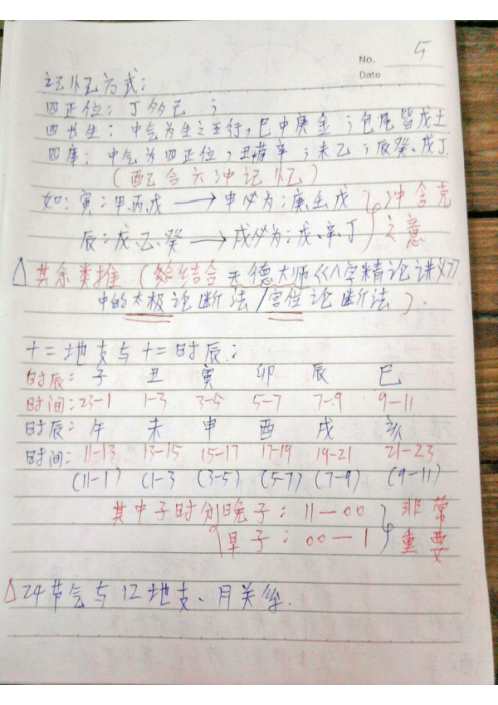 No. 5
Date
记忆方式：
四正位：丁为己；
四长生：中气为生之五行，巳中庚金；包尾皆戊土
四库：中气为四正位，丑藏辛；未乙；辰癸、戌丁
（配合六冲记忆）
如：寅：甲、丙、戊 → 申必为：庚、壬、戊 } 冲含克
辰：戊、乙、癸 → 戌必为：戊、辛、丁 之意
△其余类推（结合天德大师《八字精论讲义》
中的太极论断法/宫位论断法）.
十二地支与十二时辰：
时辰：子 丑 寅 卯 辰 巳
时间：23-1 1-3 3-5 5-7 7-9 9-11
时辰：午 未 申 酉 戌 亥
时间：11-13 13-15 15-17 17-19 19-21 21-23
(11-1) (1-3 (3-5) (5-7) (7-9) (9-11)
其中子时分{晚子：11-00 } 非常
早子：00-1 重要
△24节气与12地支、月关系.